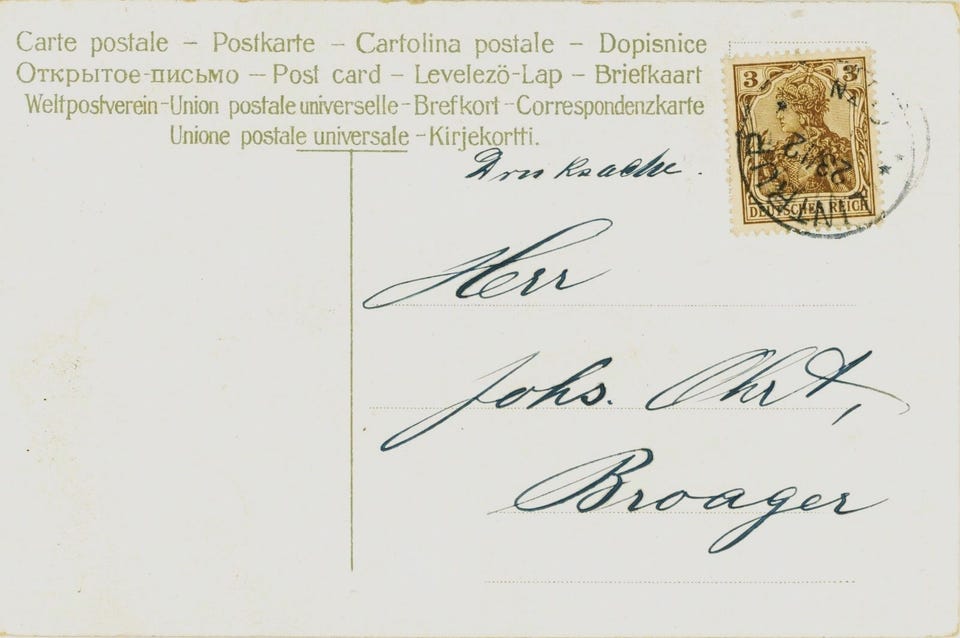 Carte postale – Postkarte – Cartolina postale – Dopisnice
Открытое-письмо – Post card – Levelezö-Lap – Briefkaart
Weltpostverein-Union postale universelle-Brefkort-Correspondenzkarte
Unione postale universale-Kirjekortti.
3 3
DEUTSCHES REICH
Drucksache.
Herr
Johs. Ohrt,
Broager